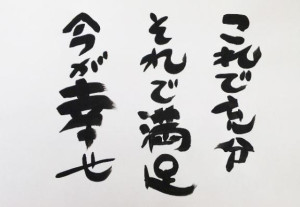 これで充分
それで満足
今が幸せ